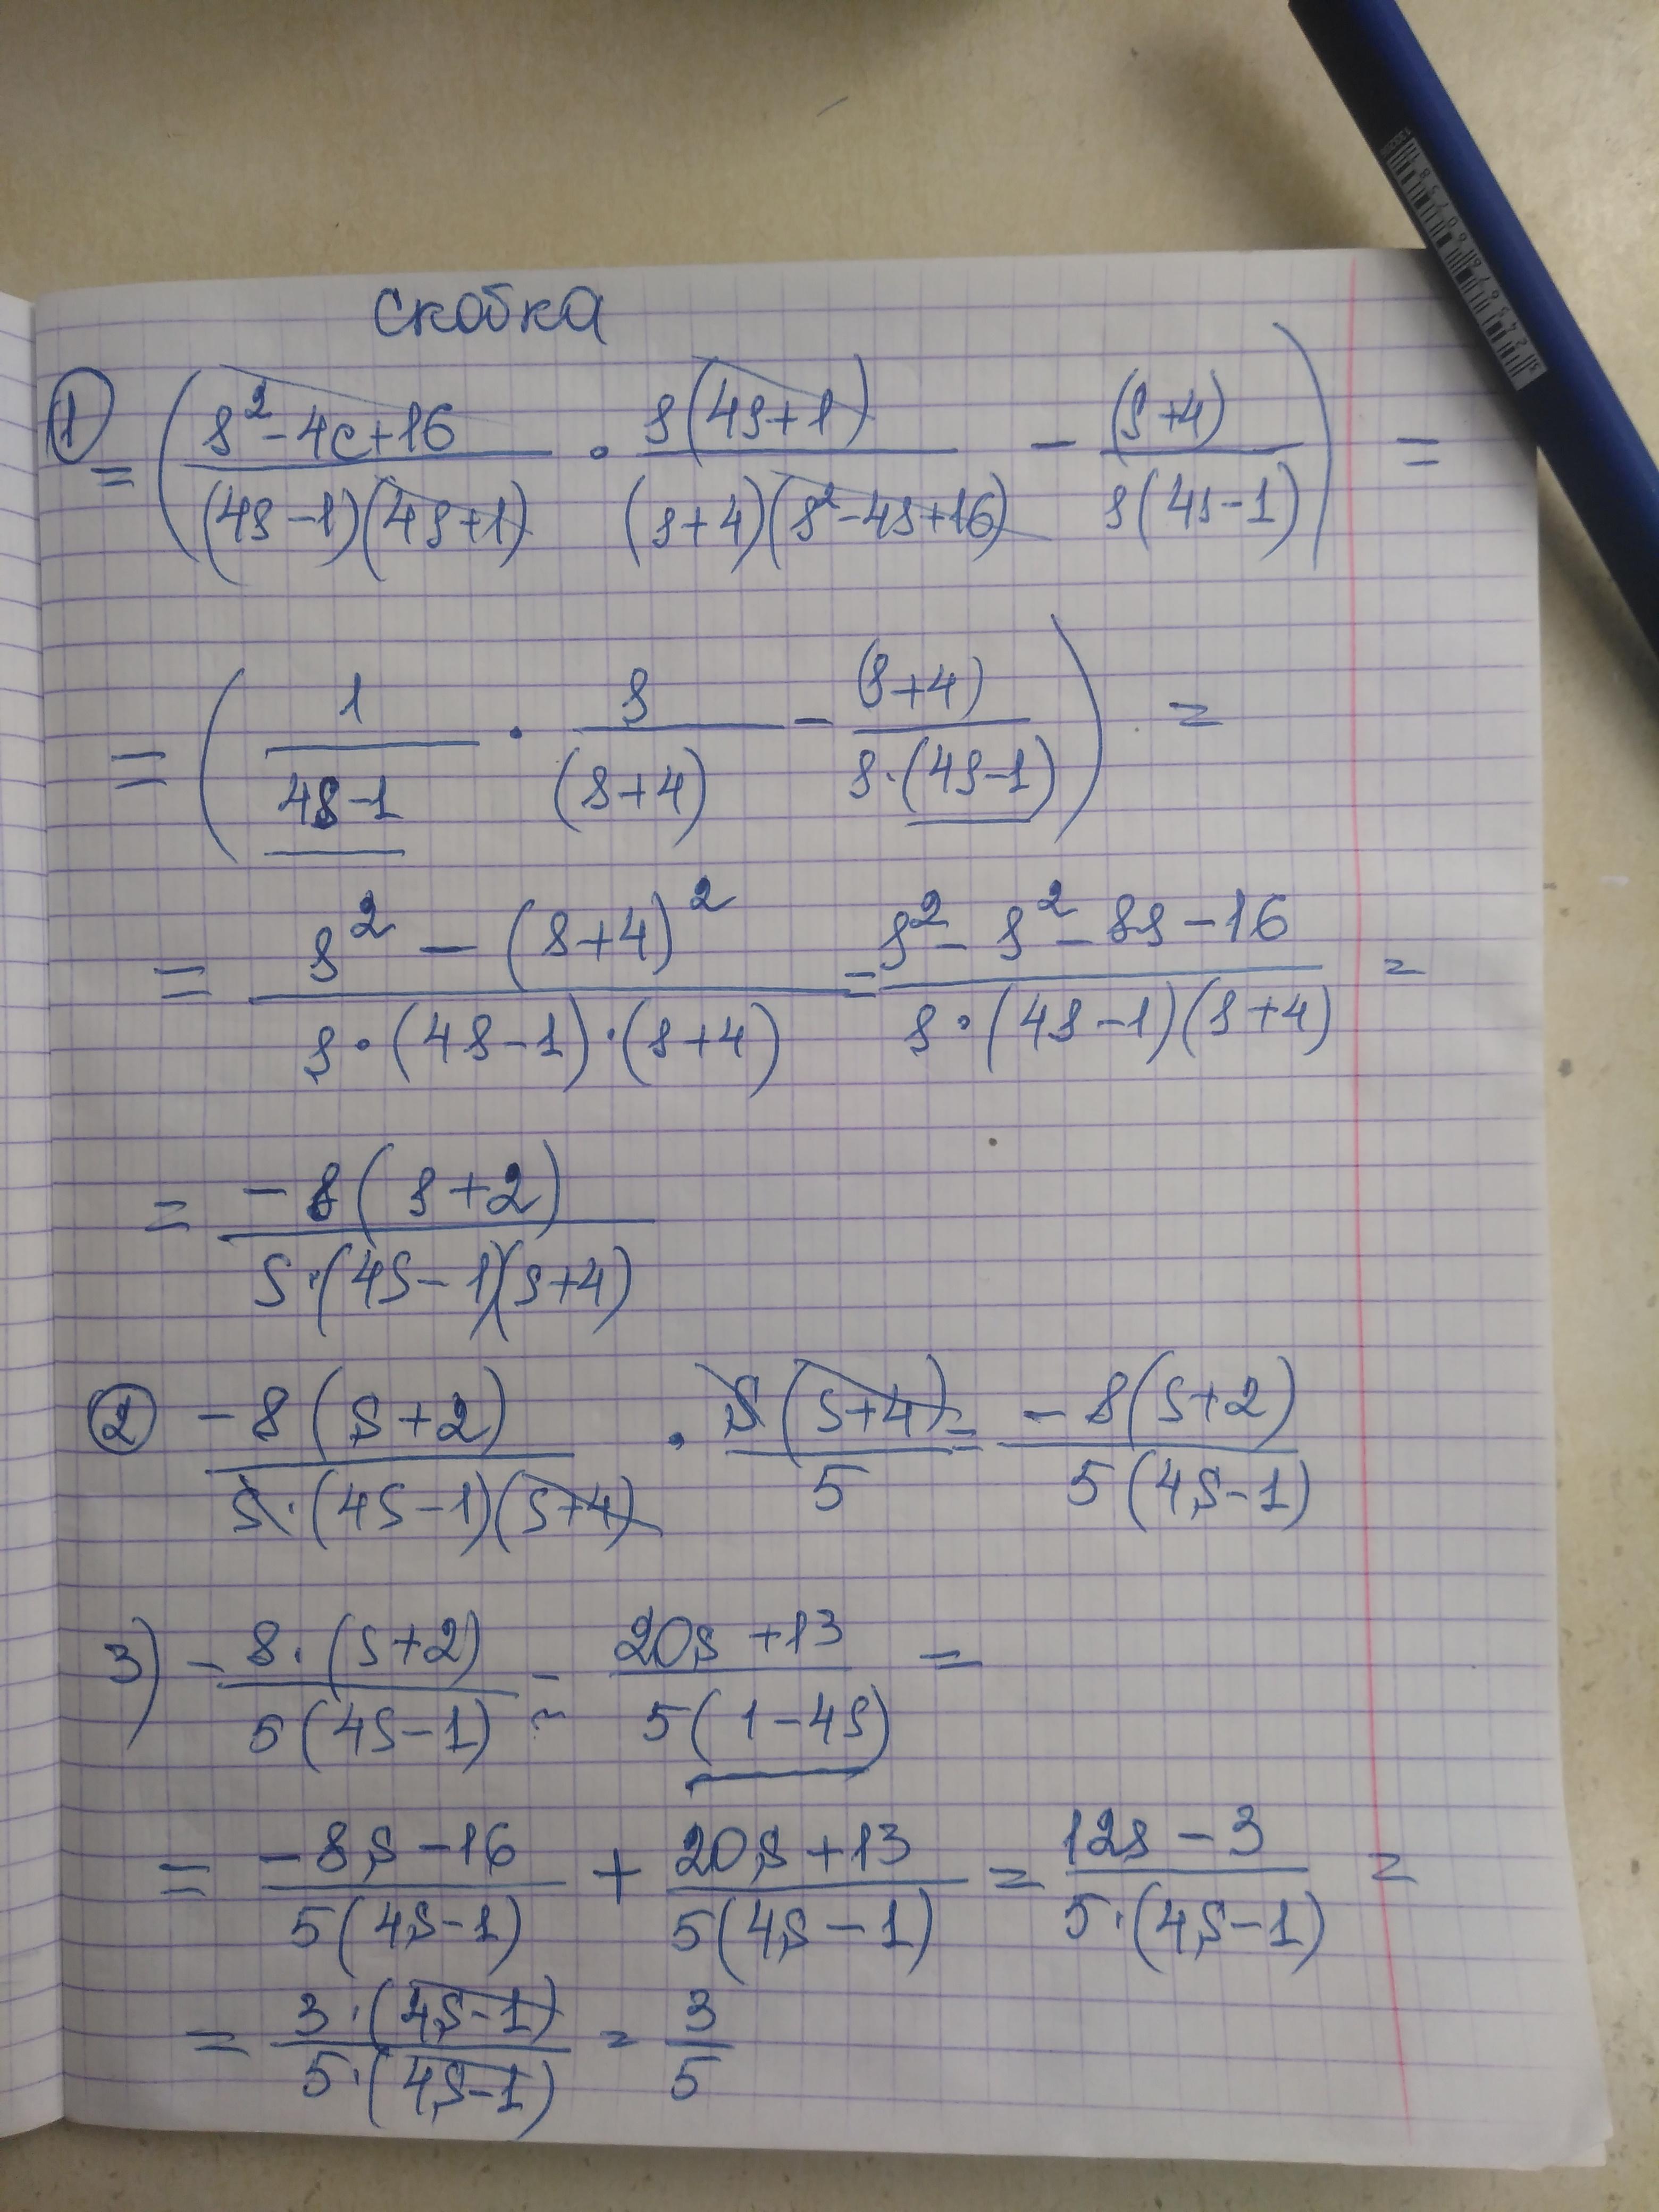 скобка
① = ( (s² - 4c + 16) / ((4s - 1)(4s + 1)) · s(4s + 1) / ((s + 4)(s² - 4s + 16)) - (s + 4) / (s(4s - 1)) ) =
= ( 1 / (4s - 1) · s / (s + 4) - (s + 4) / (s · (4s - 1)) ) =
= (s² - (s + 4)²) / (s · (4s - 1) · (s + 4)) = (s² - s² - 8s - 16) / (s · (4s - 1)(s + 4)) =
= -8(s + 2) / (s · (4s - 1)(s + 4))
② -8(s + 2) / (s · (4s - 1)(s + 4)) · s(s + 4) / 5 = -8(s + 2) / (5(4s - 1))
3) - 8 · (s + 2) / (5(4s - 1)) - (20s + 13) / (5(1 - 4s)) =
= (-8s - 16) / (5(4s - 1)) + (20s + 13) / (5(4s - 1)) = (12s - 3) / (5 · (4s - 1)) =
= 3 · (4s - 1) / (5 · (4s - 1)) = 3 / 5